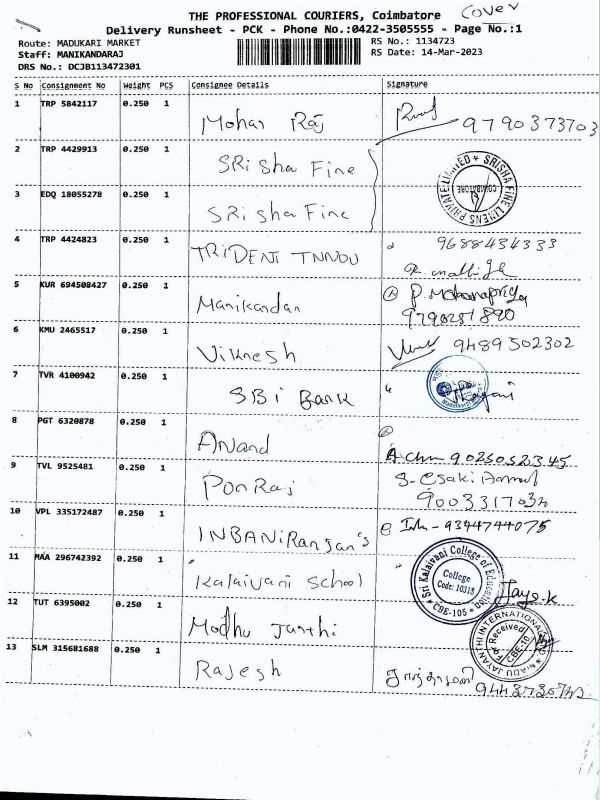 Cover
THE PROFESSIONAL COURIERS, Coimbatore
Delivery Runsheet - PCK - Phone No.:0422-3505555 - Page No.:1
Route: MADUKARI MARKET RS No.: 1134723
Staff: MANIKANDARAJ RS Date: 14-Mar-2023
DRS No.: DCJB113472301
S No Consignment No Weight PCS Consignee Details Signature
1 TRP 5842117 0.250 1 Mohan Raj 9790373703
2 TRP 4429913 0.250 1 SRi sha Fine
SRISHA FINE LINENS PRIVATE LIMITED COIMBATORE
3 EDQ 18055278 0.250 1 SRi sha Fine
4 TRP 4424823 0.250 1 TRIDENT 9688434333
5 KUR 694508427 0.250 1 Manikandan P. Mohanapriya
9790251890
6 KMU 2465517 0.250 1 Viknesh 9489502302
7 TVR 4100942 0.250 1 SBi Bank
8 PGT 6320878 0.250 1 Anand
9 TVL 9525481 0.250 1 PonRaj S. Esaki Ammal
9003317034
10 VPL 335172487 0.250 1 INBANiRanjan's 9344744075
11 MAA 296742392 0.250 1 Kalaivani School Jaya.K
Sri Kalaivani College of Education College Code: 10318 CBE-105
12 TUT 6395002 0.250 1 Madhu Janthi
MADU JAYANTHI INTERNATIONAL For Received CBE-10
13 SLM 315681688 0.250 1 Rajesh சாந்தாமணி